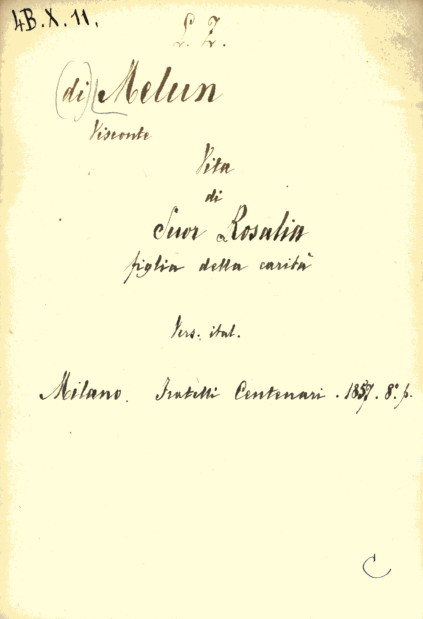 4B.X.11.
L. Z.
(di) Melun
Visconte
Vita
di
Suor Rosalia
figlia della carità
Vers. ital.
Milano. Fratelli Centenari. 1857. 8º. p.
C